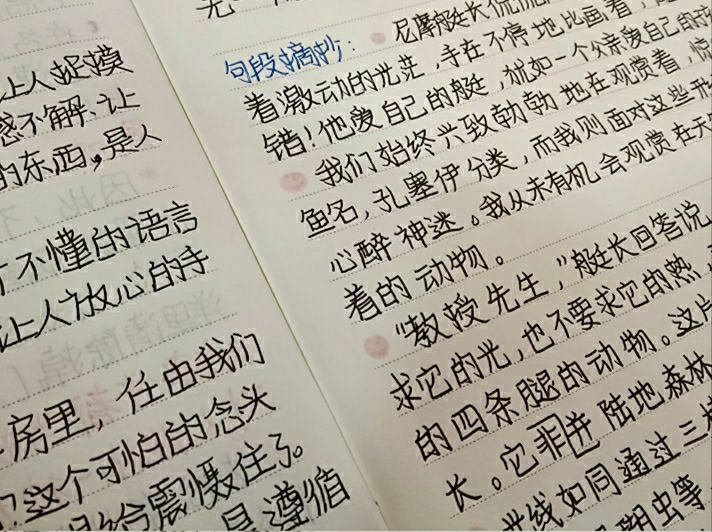 让人捉摸
惑不解、让
的东西,是人
不懂的语言
让人放心的手
房里,任由我们
这个可怕的念头
给震慑住了。
是遵循
无一
句段摘抄: 尼摩艇长侃侃
着激动的光茫,手在不停地比画着,
错!他爱自己的艇,犹如一个父亲爱自己的孩
我们始终兴致勃勃地在观赏着,惊
鱼名,孔塞伊分类,而我则面对这些
心醉神迷。我从未有机会观赏在天
着的动物。
“教授先生,”艇长回答说
求它的光,也不要求它的热,
的四条腿的动物。这片
长。它非并陆地森林
光线如同通过三
虫等